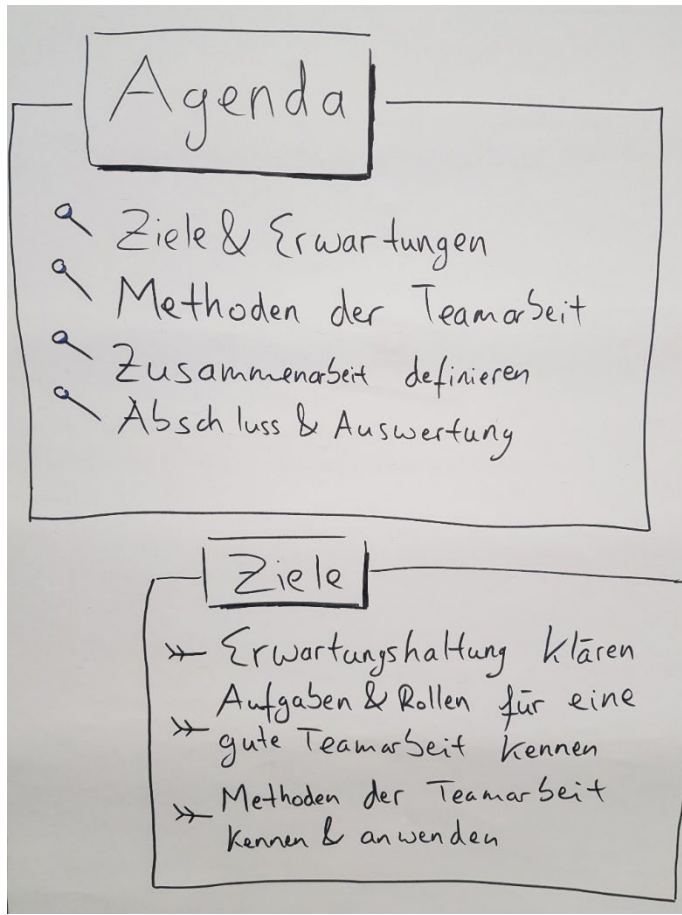 Agenda
Ziele & Erwartungen
Methoden der Teamarbeit
Zusammenarbeit definieren
Abschluss & Auswertung
Ziele
Erwartungshaltung klären
Aufgaben & Rollen für eine
gute Teamarbeit kennen
Methoden der Teamarbeit
kennen & anwenden